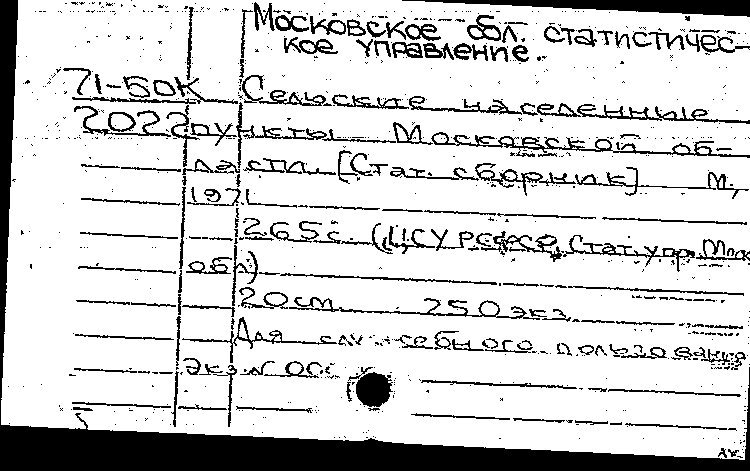 Московское обл. статистичес-
кое управление.
71-БОК Сельские населенные
2022 пункты Московской об-
ласти. [Стат. сборник] М.,
1971
265 с. (ЦСУ РСФСР. Стат. упр. Моск.
обл)
20 см. 250 экз.
Для служебного пользования
Экз. №